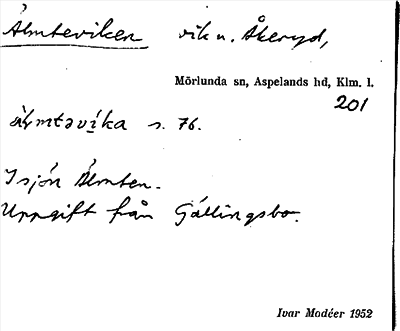 Älmteviken vik u. Åkeryd,
Mörlunda sn, Aspelands hd, Klm. l.
201
s. 76.
I sjön Älmten.
Uppgift från Gällingsbo.
Ivar Modéer 1952